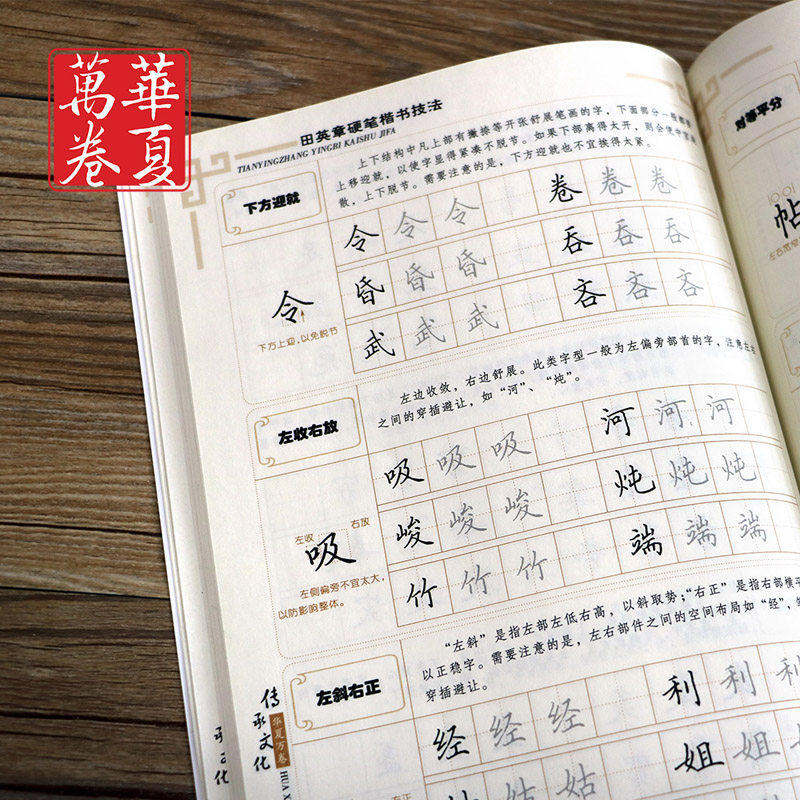 華夏
萬卷
田英章硬笔楷书技法
TIANYINGZHANG YINGBI KAISHU JIFA
下方迎就
上下结构中凡上部有撇捺等开张舒展笔画的字，下面部分一般都要
上移迎就，以使字显得紧凑不脱节。如果下部离得太开，则会使中宫涣
散，上下脱节。需要注意的是，下方迎就也不宜挨得太紧。
令
下方上迎，以免脱节
令 令 令 卷 卷 卷
昏 昏 昏 吞 吞 吞
武 武 武 吝 吝 吝
左收右放
左边收敛，右边舒展。此类字型一般为左偏旁部首的字，注意左右
之间的穿插避让，如“河”、“炖”。
左收 右放
吸
左侧偏旁不宜太大，
以防影响整体。
吸 吸 吸 河 河 河
峻 峻 峻 炖 炖 炖
竹 竹 竹 端 端 端
左斜右正
“左斜”是指左部左低右高，以斜取势；“右正”是指右部横平
以正稳字。需要注意的是，左右部件之间的空间布局如“经”，
穿插避让。
经 经 经 利 利 利
姑 姑 姐 姐 姐
右正
传承文化
华夏万卷
HUA X
承文化
对等平分
帖